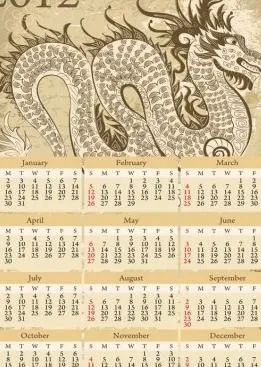 2012
January February March
M T W T F S S M T W T F S S M T W T F
2 3 4 5 6 7 1 2 3 4 1 2
9 10 11 12 13 14 5 6 7 8 9 10 11 4 5 6 7 8 9
16 17 18 19 20 21 12 13 14 15 16 17 18 11 12 13 14 15 16
23 24 25 26 27 28 19 20 21 22 23 24 25 18 19 20 21 22 23
30 31 26 27 28 29 25 26 27 28 29 30
April May June
M T W T F S S M T W T F S S M T W T F
2 3 4 5 6 7 1 2 3 4 5 1
9 10 11 12 13 14 6 7 8 9 10 11 12 3 4 5 6 7 8
16 17 18 19 20 21 13 14 15 16 17 18 19 10 11 12 13 14 15
23 24 25 26 27 28 20 21 22 23 24 25 26 17 18 19 20 21 22
30 27 28 29 30 31 24 25 26 27 28 29
July August September
M T W T F S S M T W T F S S M T W T F
2 3 4 5 6 7 1 2 3 4
9 10 11 12 13 14 5 6 7 8 9 10 11 2 3 4 5 6 7
16 17 18 19 20 21 12 13 14 15 16 17 18 9 10 11 12 13 14
23 24 25 26 27 28 19 20 21 22 23 24 25 16 17 18 19 20 21
30 31 26 27 28 29 30 31 23 24 25 26 27 28
30
October November December
M T W T F S S M T W T F S S M T W T F
1 2 3 4 5 6 1 2 3
8 9 10 11 12 13 4 5 6 7 8 9 10 2 3 4 5 6 7